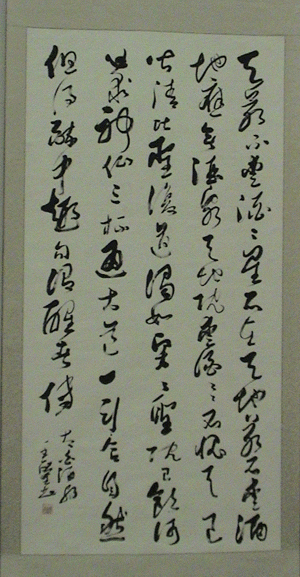 天若不愛酒〻星不在天地若不愛酒
地應無酒泉天地既愛酒〻不愧天已
聞清比聖復道濁如賢〻聖既已飲何
必求神仙三杯通大道一斗合自然
但得醉中趣勿謂醒者傳